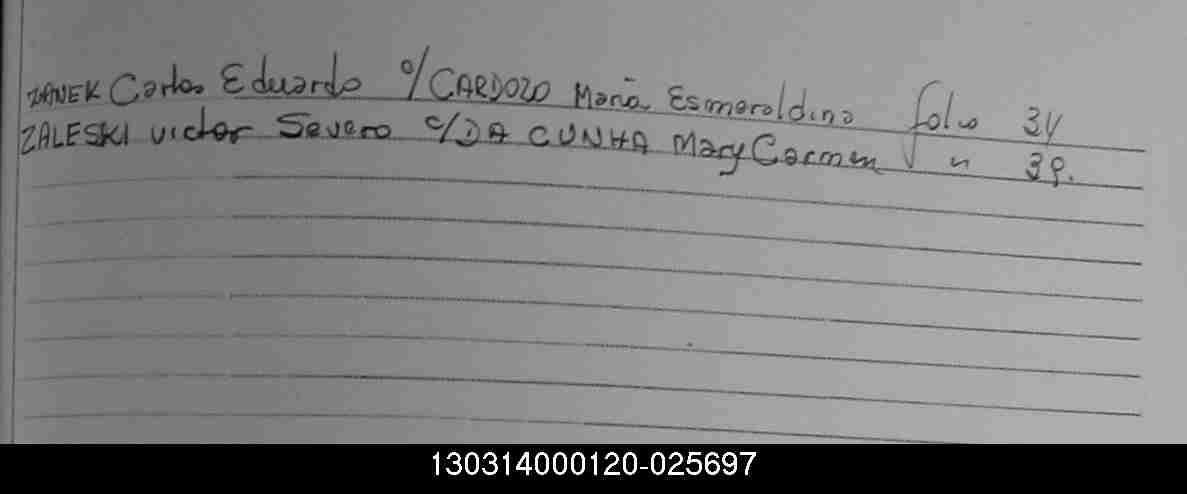 ZANEK Carlos Eduardo c/CARDOZO Maria Esmeraldina folio 34
ZALESKI Victor Severo c/DA CUNHA Mary Carmen " 39.
130314000120-025697